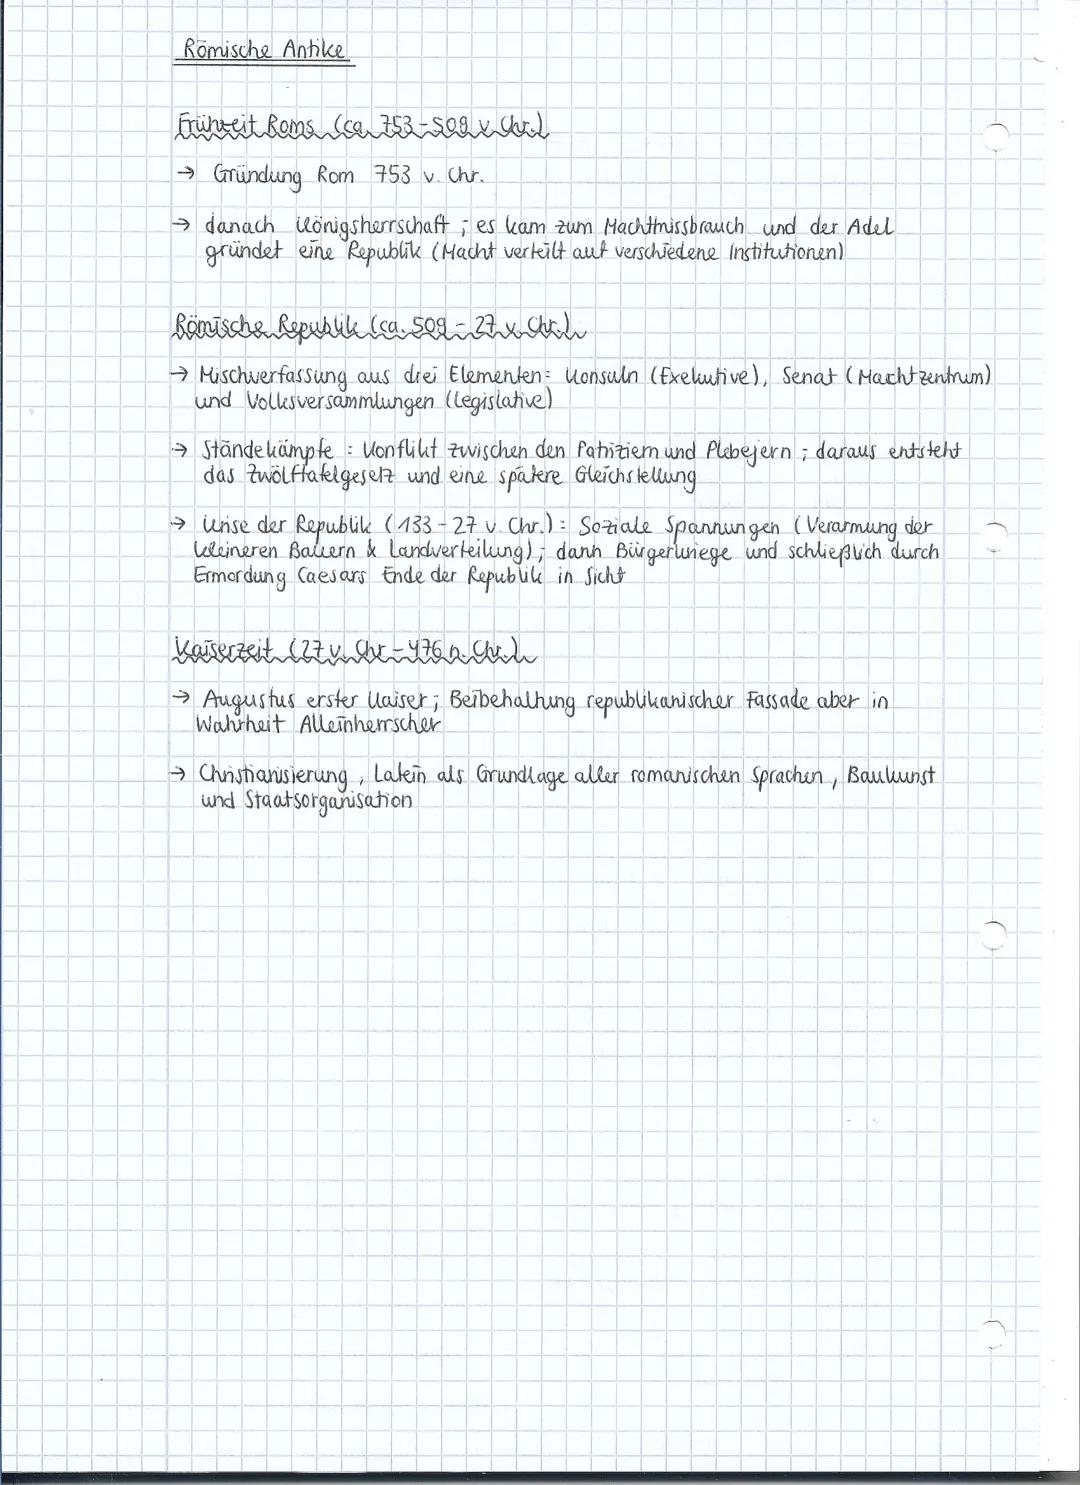 Römische Antike
Frühzeit Roms (ca. 753-509 v. Chr.)
→ Gründung Rom 753 v. Chr.
→ danach Königsherrschaft ; es kam zum Machtmissbrauch und der Adel
gründet eine Republik (Macht verteilt auf verschiedene Institutionen)
Römische Republik (ca. 509 - 27 v. Chr.)
→ Mischverfassung aus drei Elementen: Konsuln (Exekutive), Senat (Machtzentrum)
und Volksversammlungen (Legislative)
→ Ständekämpfe : Konflikt zwischen den Patriziern und Plebejern ; daraus entsteht
das Zwölftafelgesetz und eine spätere Gleichstellung
→ Krise der Republik (133-27 v. Chr.) : Soziale Spannungen (Verarmung der
kleineren Bauern & Landverteilung) ; dann Bürgerkriege und schließlich durch
Ermordung Caesars Ende der Republik in Sicht
Kaiserzeit (27 v. Chr - 476 n. Chr.)
→ Augustus erster Kaiser ; Beibehaltung republikanischer Fassade aber in
Wahrheit Alleinherrscher
→ Christianisierung , Latein als Grundlage aller romanischen Sprachen , Baukunst
und Staatsorganisation